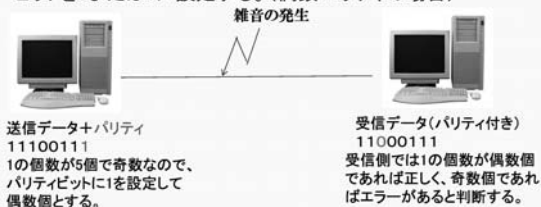 雑音の発生
送信データ+パリティ
11100111
1の個数が5個で奇数なので、
パリティビットに1を設定して
偶数個とする。
受信データ(パリティ付き)
11000111
受信側では1の個数が偶数個
であれば正しく、奇数個であれ
ばエラーがあると判断する。